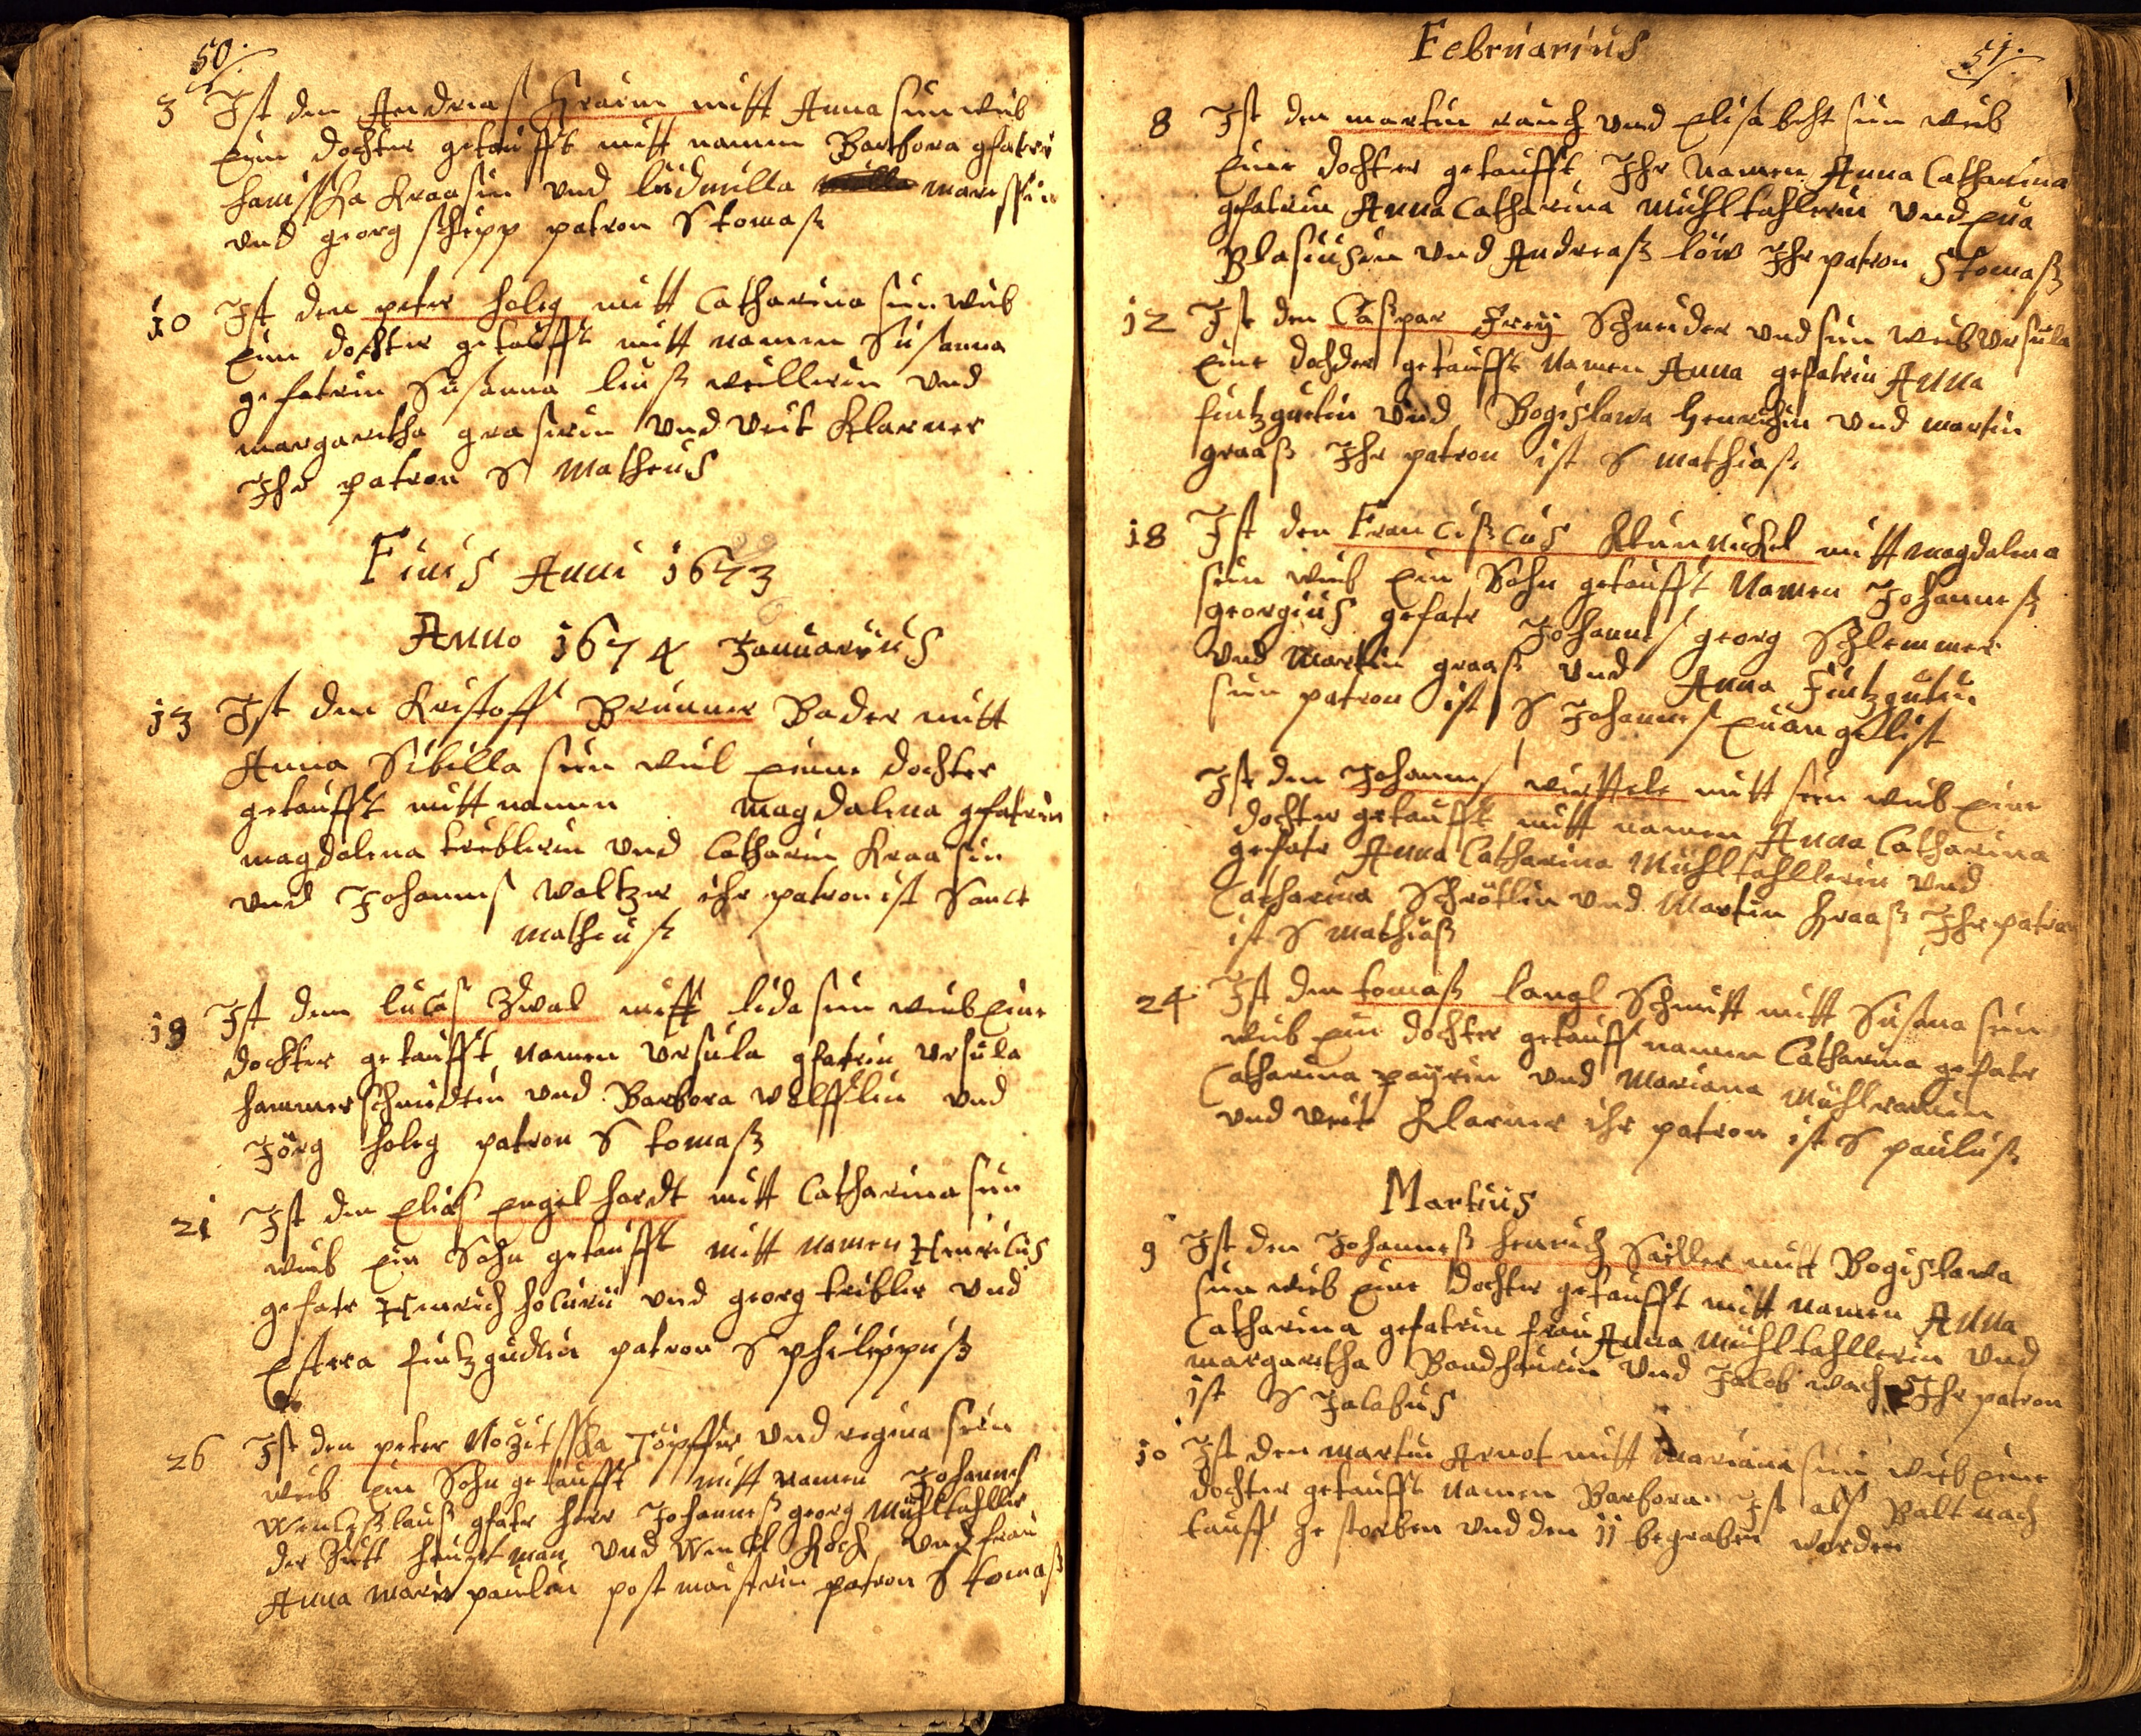 50.
3 Ist den Andreas Kraim mitt Anna sein weib
eine dochter getaufft mitt namen Barbora gfatrin
hanschka Kraasin und ludmilla
und georg schipp patron S tomaß
10 Ist den peter holeg mitt Catharina sein weib
ein dochter getaufft mitt namen Susanna
gefatrin Susanna und
margaretha graserin und veit Klarner
Ihr patron S Matheus
Finis Anni 1673
Anno 1674 Januarius
13 Ist den Kristoff Brunner Bader mitt
Anna Sibilla sein weib eine dochter
getaufft mitt namen Magdalena gfatrin
magdalena treiblerin und Catharin Kraasin
und Johannes Waltzer ihr patron ist Sanct
matheus
19 Ist dem lucas Zwal mitt lida sein weib eine
dochter getaufft namen Ursula gfatrin Ursula
hammerschmidtin und Barbora wölfflin und
Jörg holeg patron S tomaß
21 Ist den Elias Engelhardt mitt Catharina sein
weib ein Sohn getaufft mitt namen Henricus
gefatr Henrich und georg treibler und
Estera fintzgudtin patron S philippuß
26 Ist den peter Nozitschka Töpffer und regina sein
weib ein Sohn getaufft mitt namen Johannes
Wentzßlauß gfatr herr Johanneß georg Mühltahller
der Zeitt hauptman und Wentzl Koch und frau
Anna maria paulin postmaistrin patron S tomaß
Februarius
51.
8 Ist den martin rauch und Elisabeht sein weib
eine dochter getaufft Ihr Namen Anna Catharina
gfatrin Anna Catharina Mühltahlerin und Eua
Blasiusin und Andreaß löw Ihr patron S tomaß
12 Ist den Caspar Frey Schneider und sein weib Ursula
eine dochder getaufft Namen Anna gefatrin Anna
fintzgutin und Bogislawa Henrichin und martin
graaß Ihr patron ist S mathias
18 Ist den Francißcus mitt magdalena
sein weib ein Sohn getaufft Namen Johanneß
georgius gefatr Johannes georg Schlemmer
und Martin graaß und Anna Fintzgutin
sein patron ist S Johannes Euangelist
Ist den Johannes mitt sein weib eine
dochter getaufft mitt namen Anna Catharina
gefatr Anna Catharina Mühltahllerin und
Catharina Schrötlin und Martin Kraaß Ihr patron
ist S mathiaß
24 Ist den tomaß langl Schmitt mitt Susana sein
weib ein dochter getauff namen Catharina gefatr
Catharina payrin und Mariana
und veit Klarner ihr patron ist S pauluß
Martius
9 Ist den Johanneß henrich Sailler mitt Bogislawa
sein weib eine dochter getaufft mitt namen Anna
Catharina gefatrin frau Anna Mühltahllerin und
margaretha und Jacob Ihr patron
ist S Jacobus
10 Ist den martin Arnot mitt Mariana sein weib eine
dochter getaufft namen Barbora Ist alß Balt nach
tauff gestorben und den 11 begraben worden